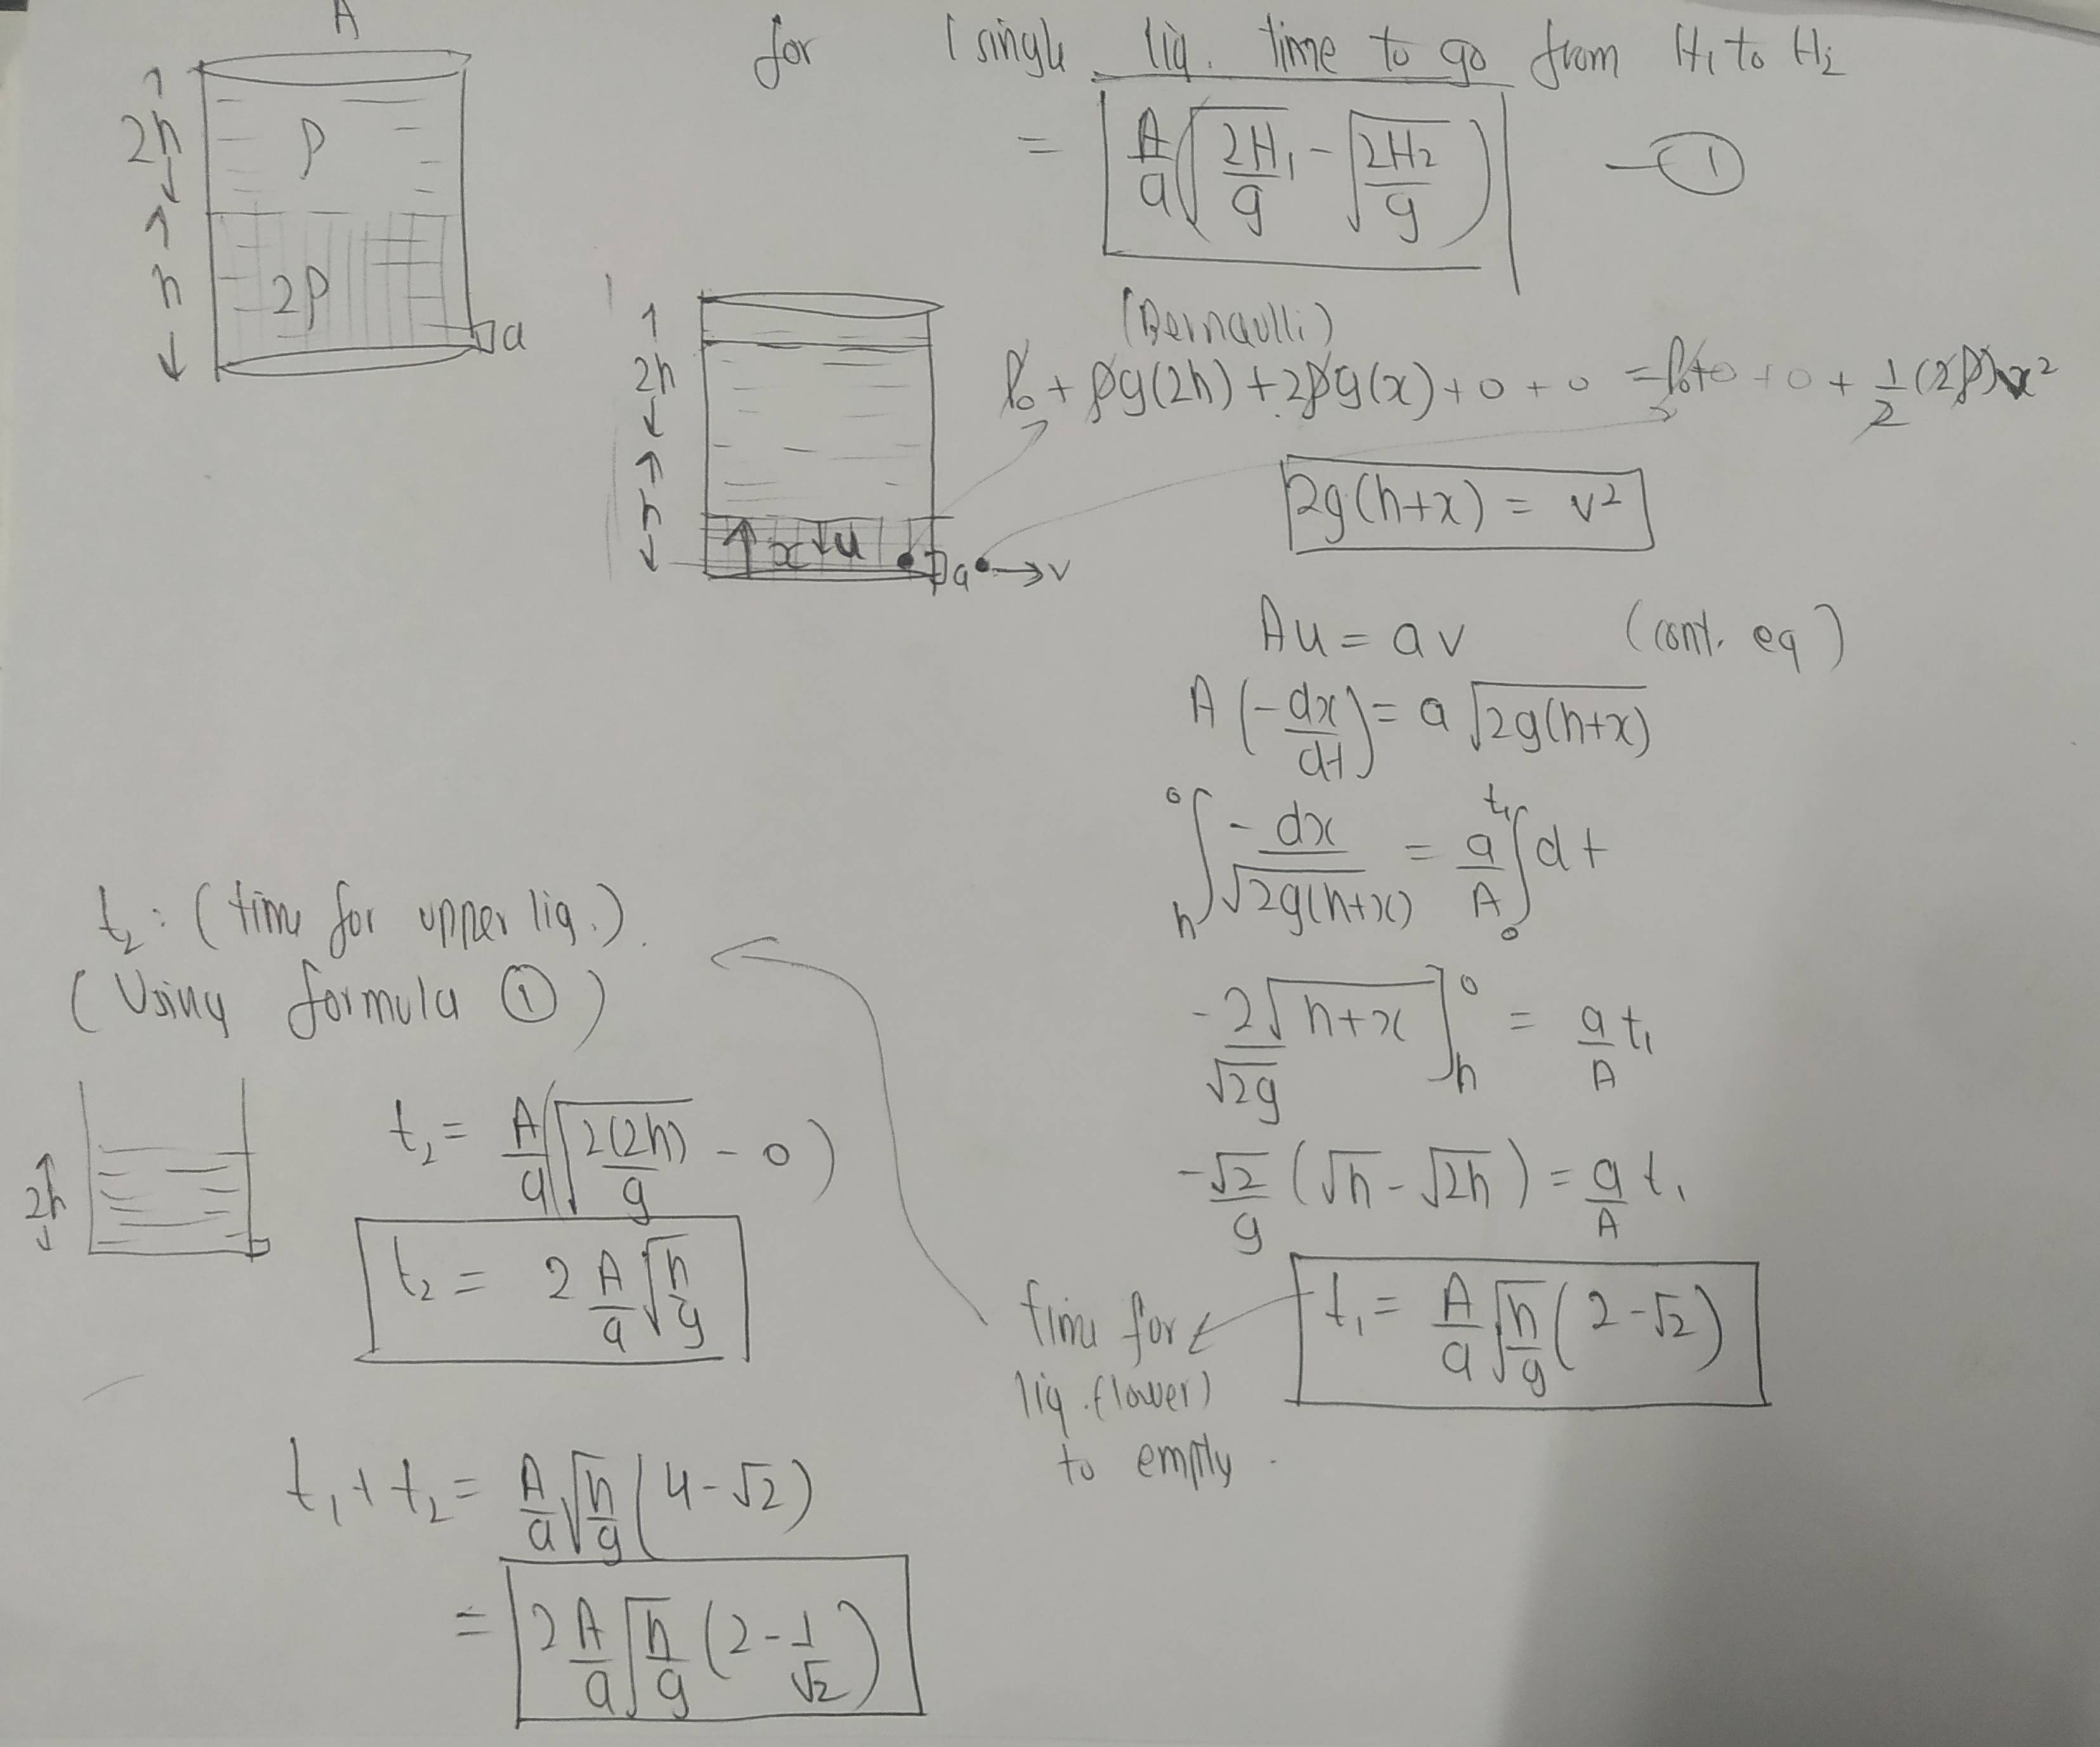 A
2h
ρ
h
2ρ
a
for 1 single liq. time to go from H₁ to H₂
= A/a (√(2H₁/g) - √(2H₂/g)) — ①
2h
h
x ↓u
a → v
(Bernaulli)
P₀ + ρg(2h) + 2ρg(x) + 0 + 0 = P₀ + 0 + 0 + 1/2 (2ρ)v²
2g(h+x) = v²
Au = av (cont. eq)
A(-dx/dt) = a√(2g(h+x))
∫ₕ⁰ -dx/√(2g(h+x)) = a/A ∫₀^t₁ dt
-2/√2g √(h+x)]ₕ⁰ = a/A t₁
-√2/g (√h - √2h) = a/A t₁
t₁ = A/a √(h/g) (2-√2)
time for
liq. (lower)
to empty.
t₂: (time for upper liq.).
(Using formula ①)
2h
t₂ = A/a (√(2(2h)/g) - 0)
t₂ = 2 A/a √(h/g)
t₁ + t₂ = A/a √(h/g) (4-√2)
= 2 A/a √(h/g) (2 - 1/√2)